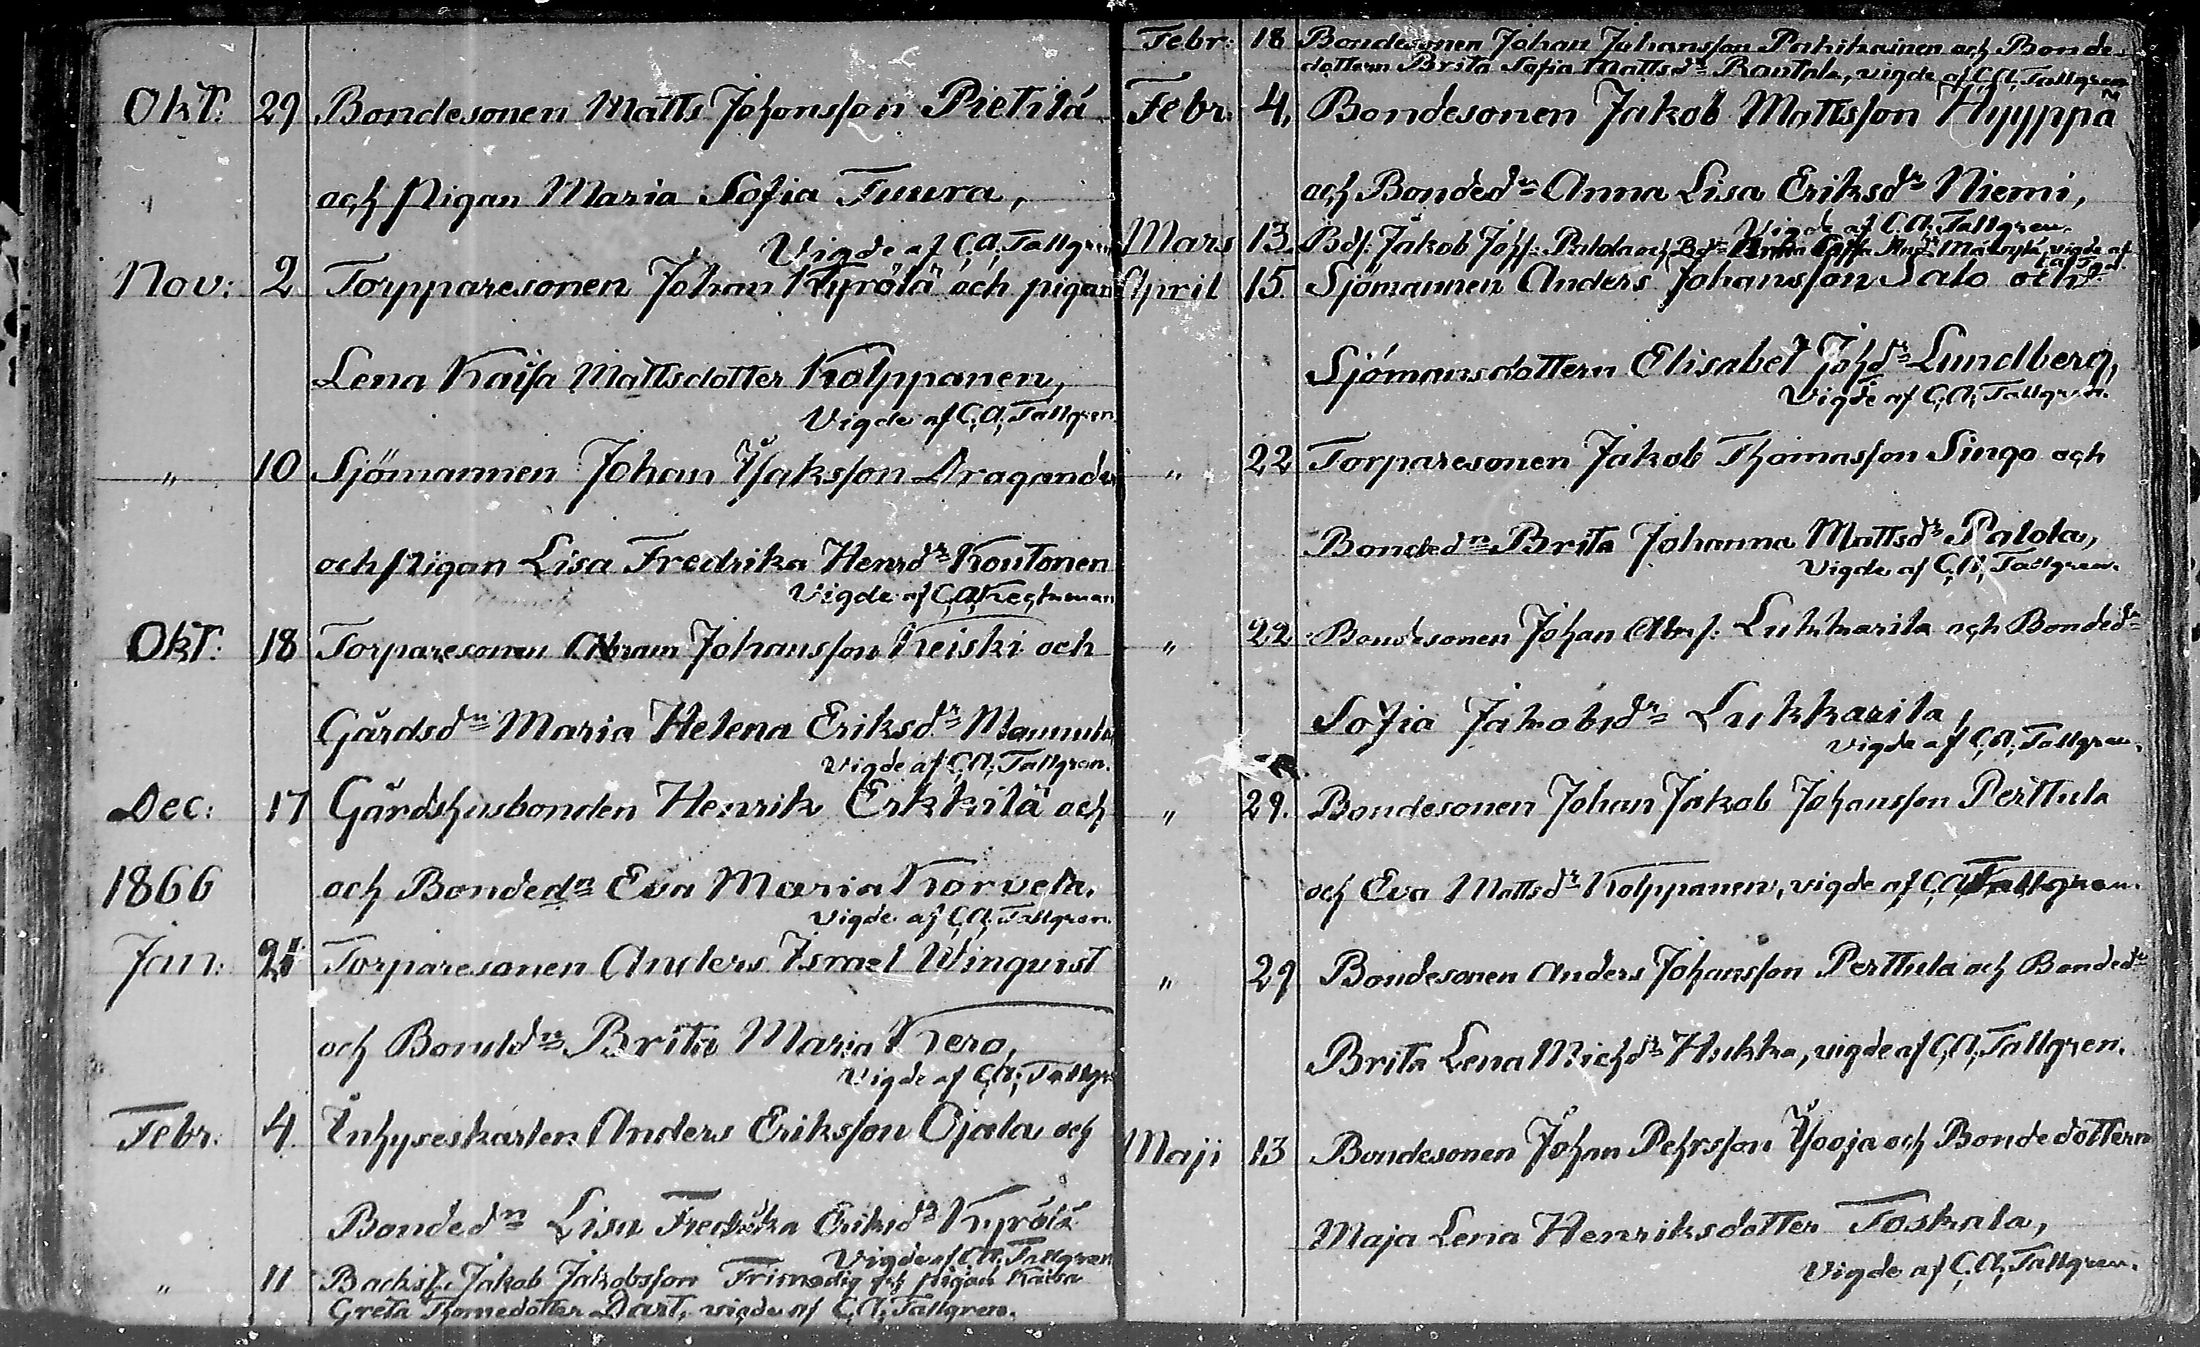 Okt: 29 Bondesonen Matts Johansson Pietilä
och Pigan Maria Sofia Tuura,
Vigde af C.A. Tallgren
Nov: 2 Torpparesonen Johan Kyrölä och pigan
Lena Kaisa Mattsdotter Kolppanen,
Vigde af C.A. Tallgren.
" 10 Sjömannen Johan Isaksson Dragande
och Pigan Lisa Fredrika Henrdr Koutonen
Vigde af C.A.
Okt: 18 Torparesonen Abram Johansson Keiski och
Gårdsdn Maria Helena Eriksdr
Vigde af C.A. Tallgren.
Dec: 17 Gårdshusbonden Henrik Erkkilä och
1866 och Bondedn Eva Maria Korvela.
Vigde af C.A. Tallgren.
Jan: 21 Torparesonen Anders Israel Winquist
och Bondedn Brita Maria Kero,
Vigde af C.A. Tallgr
Febr: 4. Inhyseskarlen Anders Eriksson Ojala och
Bondedn Lisa Fredrika Eriksdr Kyrölä
Vigde af C.A. Tallgren
" 11 Backsf. Jakob Jakobsson Frimodig och pigan Kaisa
Greta Thomedotter Dart, vigde af C.A. Tallgren.
Febr: 18 Bondesonen Johan Johansson Pahikainen och Bonde-
dottern Brita Sofia Mattsdr Rautala, vigde af C.A. Tallgren
Febr: 4, Bondesonen Jakob Mattsson Hyyppä
och Bondedn Anna Lisa Eriksdr Niemi,
Vigde af C.A. Tallgren.
Mars 13. Bds: Jakob Johs: Palola och Bdn Anna vigde af
April 15. Sjömannen Anders Johansson Salo och
Sjömansdottern Elisabet Johdr Lundberg,
Vigde af C.A. Tallgren.
" 22 Torparesonen Jakob Thomasson Singo och
Bondedn Brita Johanna Mattsdr Palola,
Vigde af C.A. Tallgren.
" 22 Bondesonen Johan Abrs: Lukkarila och Bondedn
Sofia Jakobsdr Lukkarila,
vigde af C.A. Tallgren.
" 29. Bondesonen Johan Jakob Johansson Perttula
och Eva Mattsdr Kolppanen, vigde af C.A. Tallgren.
" 29 Bondesonen Anders Johansson Perttula och Bondedn
Brita Lena Michdr Hukka, vigde af C.A. Tallgren.
Maji 13 Bondesonen Johan Pehrsson Isooja och Bondedottern
Maja Lena Henriksdotter Toskala,
Vigde af C.A. Tallgren.